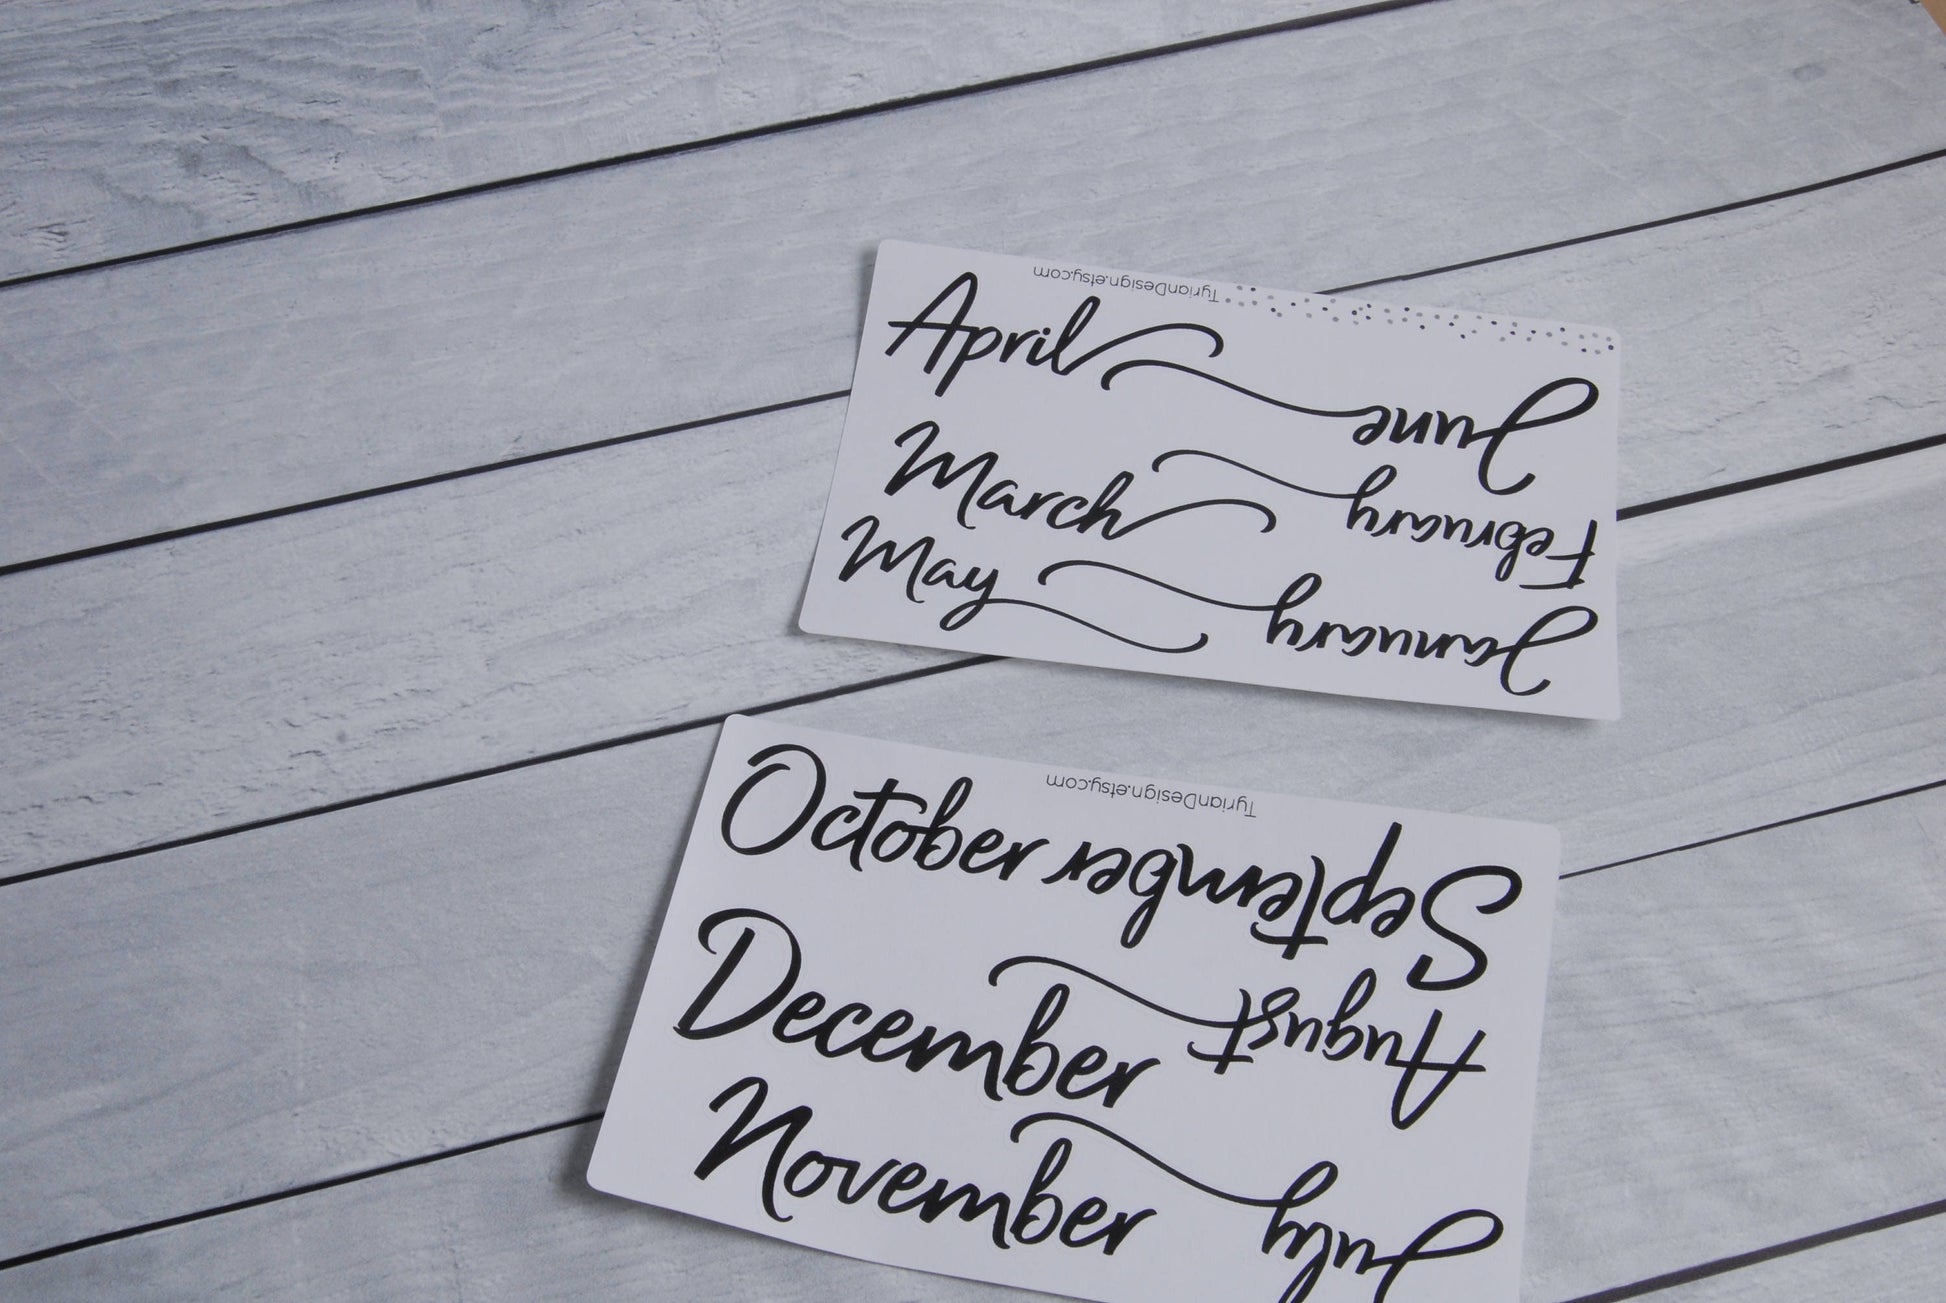 TyrianDesign.etsy.com
April
June
March
February
May
January
TyrianDesign.etsy.com
October
September
December
August
November
July